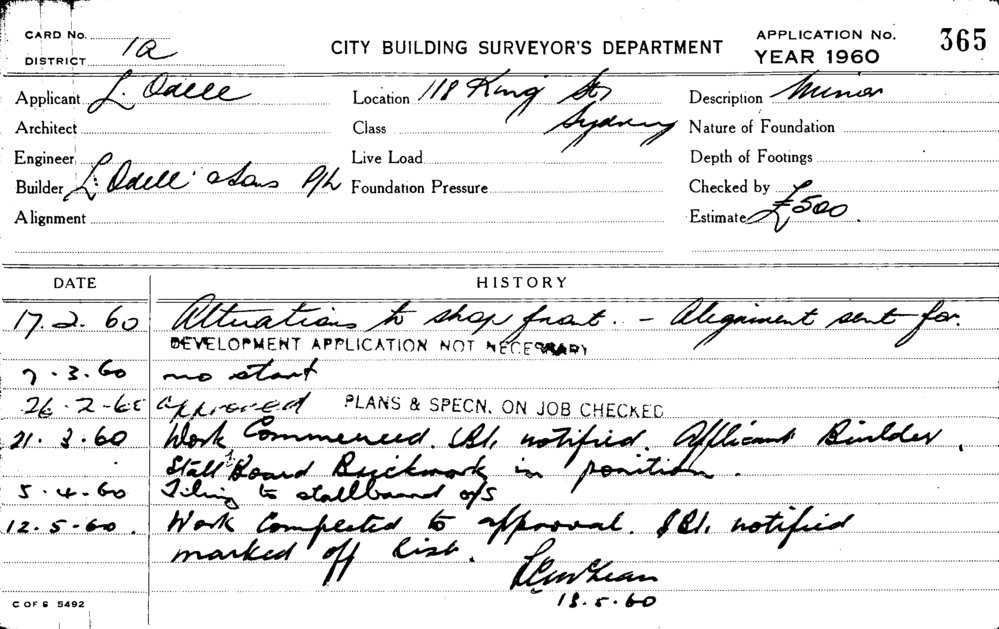 CARD No.
DISTRICT 1a
CITY BUILDING SURVEYOR'S DEPARTMENT
APPLICATION No. 365
YEAR 1960
Applicant L. Odell
Location 118 King St, Sydney
Description Minor
Architect
Class
Nature of Foundation
Engineer
Live Load
Depth of Footings
Builder L. Odell & Sons P/L
Foundation Pressure
Checked by
Alignment
Estimate £500.
DATE HISTORY
17.2.60 Alterations to shop front. - Alignment sent for.
DEVELOPMENT APPLICATION NOT NECESSARY
7.3.60 no start
26.2.60 approved PLANS & SPECN. ON JOB CHECKED
21.3.60 Work Commenced. notified. Applicant Builder.
Stall Board Brickwork in position.
5.4.60 Tiling to stallboard o/s
12.5.60. Work Completed to approval. notified
marked off list.
13.5.60
C OF S 5492